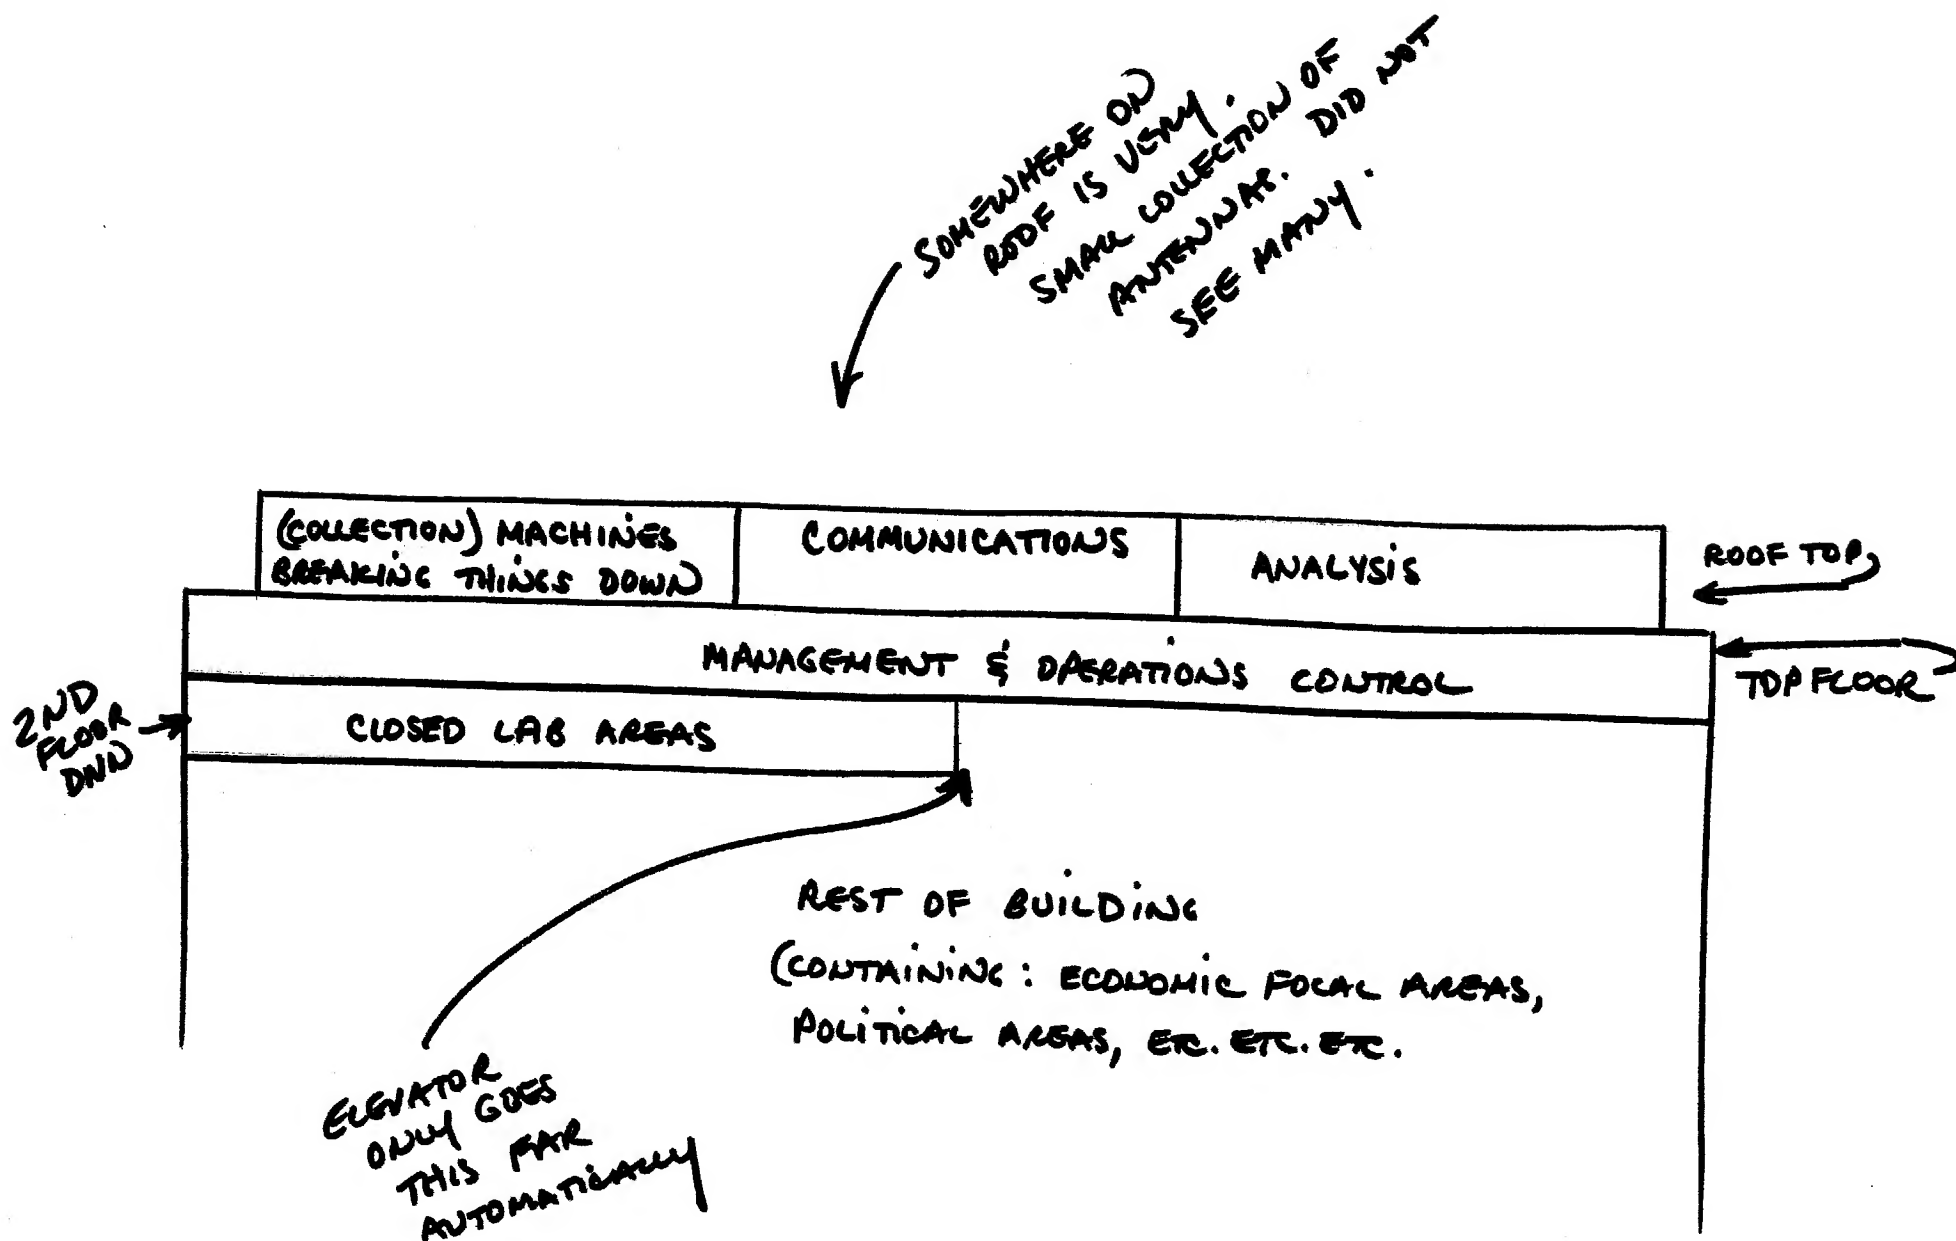 SOMEWHERE ON
ROOF IS VERY
SMALL COLLECTION OF
ANTENNAS. DID NOT
SEE MANY.
(COLLECTION) MACHINES
BREAKING THINGS DOWN
COMMUNICATIONS
ANALYSIS
ROOF TOP
MANAGEMENT & OPERATIONS CONTROL
TOP FLOOR
2ND
FLOOR
DNN
CLOSED LAB AREAS
REST OF BUILDING
(CONTAINING: ECONOMIC FOCAL AREAS,
POLITICAL AREAS, ETC. ETC. ETC.
ELEVATOR
ONLY GOES
THIS FAR
AUTOMATICALLY